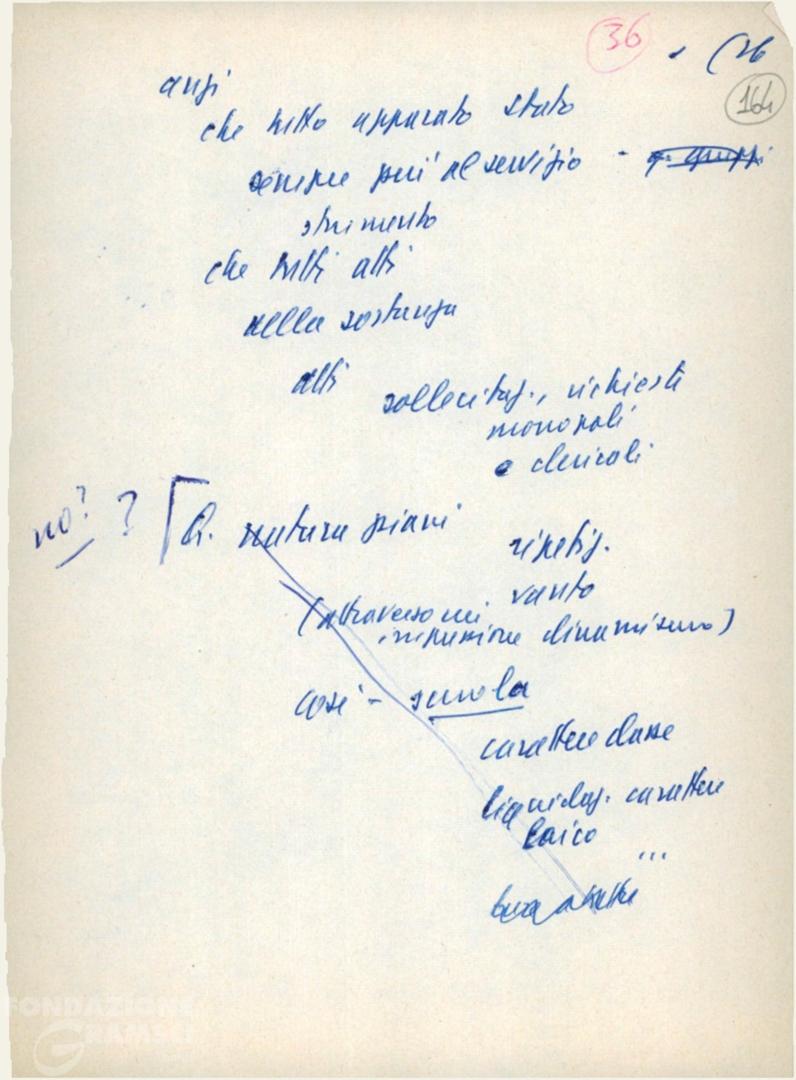 36 - (26
164
anzi
che tutto apparato stato
sempre più al servizio -
strumento
che tutti atti
della sostanza
atti
sollecitaz., richieste
monopoli
e clericali
no? ? [Q. natura piani
ripetiz.
vanto
(attraverso cui
impressione dinamismo)
così - scuola
carattere classe
liquidaz. carattere
laico
...
FONDAZIONE
GRAMSCI